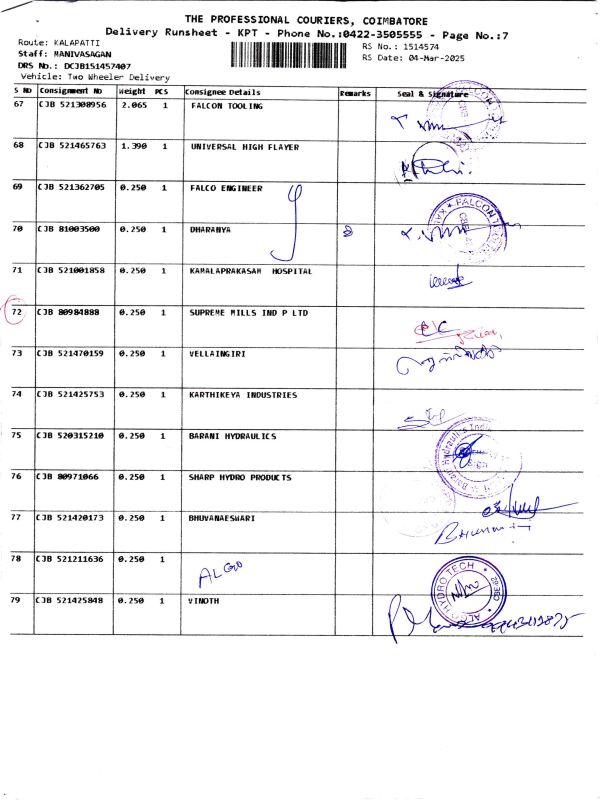 THE PROFESSIONAL COURIERS, COIMBATORE
Delivery Runsheet - KPT - Phone No.:0422-3505555 - Page No.:7
Route: KALAPATTI
RS No.: 1514574
Staff: MANIVASAGAN
RS Date: 04-Mar-2025
DRS No.: DCJB151457407
Vehicle: Two Wheeler Delivery
S NO Consignment No Weight PCS Consignee Details Remarks Seal & Signature
67 CJB 521308956 2.065 1 FALCON TOOLING
68 CJB 521465763 1.390 1 UNIVERSAL HIGH FLAYER
69 CJB 521362705 0.250 1 FALCO ENGINEER
70 CJB 81003500 0.250 1 DHARANYA
71 CJB 521001858 0.250 1 KAMALAPRAKASAM HOSPITAL
72 CJB 80984888 0.250 1 SUPREME MILLS IND P LTD
73 CJB 521470159 0.250 1 VELLAINGIRI
74 CJB 521425753 0.250 1 KARTHIKEYA INDUSTRIES
75 CJB 520315210 0.250 1 BARANI HYDRAULICS
76 CJB 80971066 0.250 1 SHARP HYDRO PRODUCTS
77 CJB 521420173 0.250 1 BHUVANAESWARI
78 CJB 521211636 0.250 1 ALGO
ALGO HYDRO TECH
79 CJB 521425848 0.250 1 VINOTH